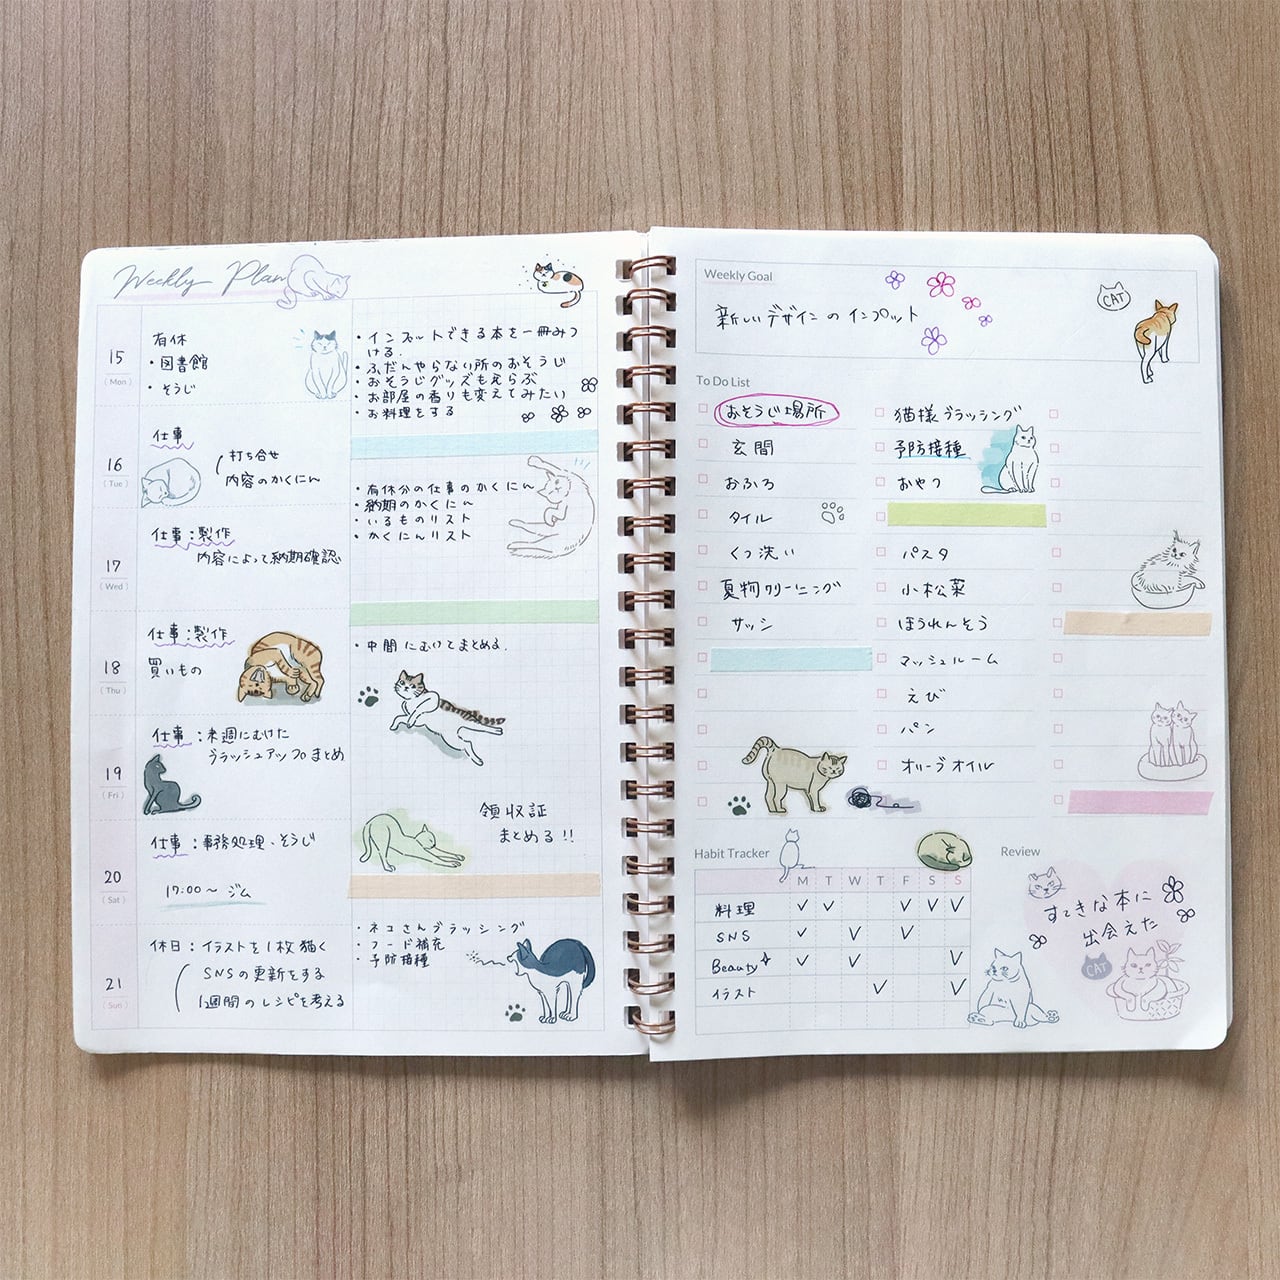 Weekly Plan
15
(Mon)
有休
・図書館
・そうじ
・インプットできる本を一冊みつ
ける.
・ふだんやらない所のおそうじ
・おそうじグッズもえらぶ
・お部屋の香りも変えてみたい
・お料理をする
16
(Tue)
仕事
打ち合せ
内容のかくにん
・有休分の仕事のかくにん
・納期のかくにん
・いるものリスト
・かくにんリスト
17
(Wed)
仕事:製作
内容によって納期確認
18
(Thu)
仕事:製作
買いもの
・中間にむけてまとめる.
19
(Fri)
仕事:来週にむけた
ブラッシュアップまとめ
領収証
まとめる!!
20
(Sat)
仕事:事務処理、そうじ
17:00〜 ジム
21
(Sun)
休日:イラストを1枚描く
SNSの更新をする
1週間のレシピを考える
・ネコさんブラッシング
・フード補充
・予防接種
Weekly Goal
新しいデザインのインプット
CAT
To Do List
おそうじ場所
玄関
おふろ
タイル
くつ洗い
夏物クリーニング
サッシ
猫様ブラッシング
予防接種
おやつ
パスタ
小松菜
ほうれんそう
マッシュルーム
えび
パン
オリーブオイル
Habit Tracker
M T W T F S S
料理
SNS
Beauty
イラスト
Review
すてきな本に
出会えた
CAT